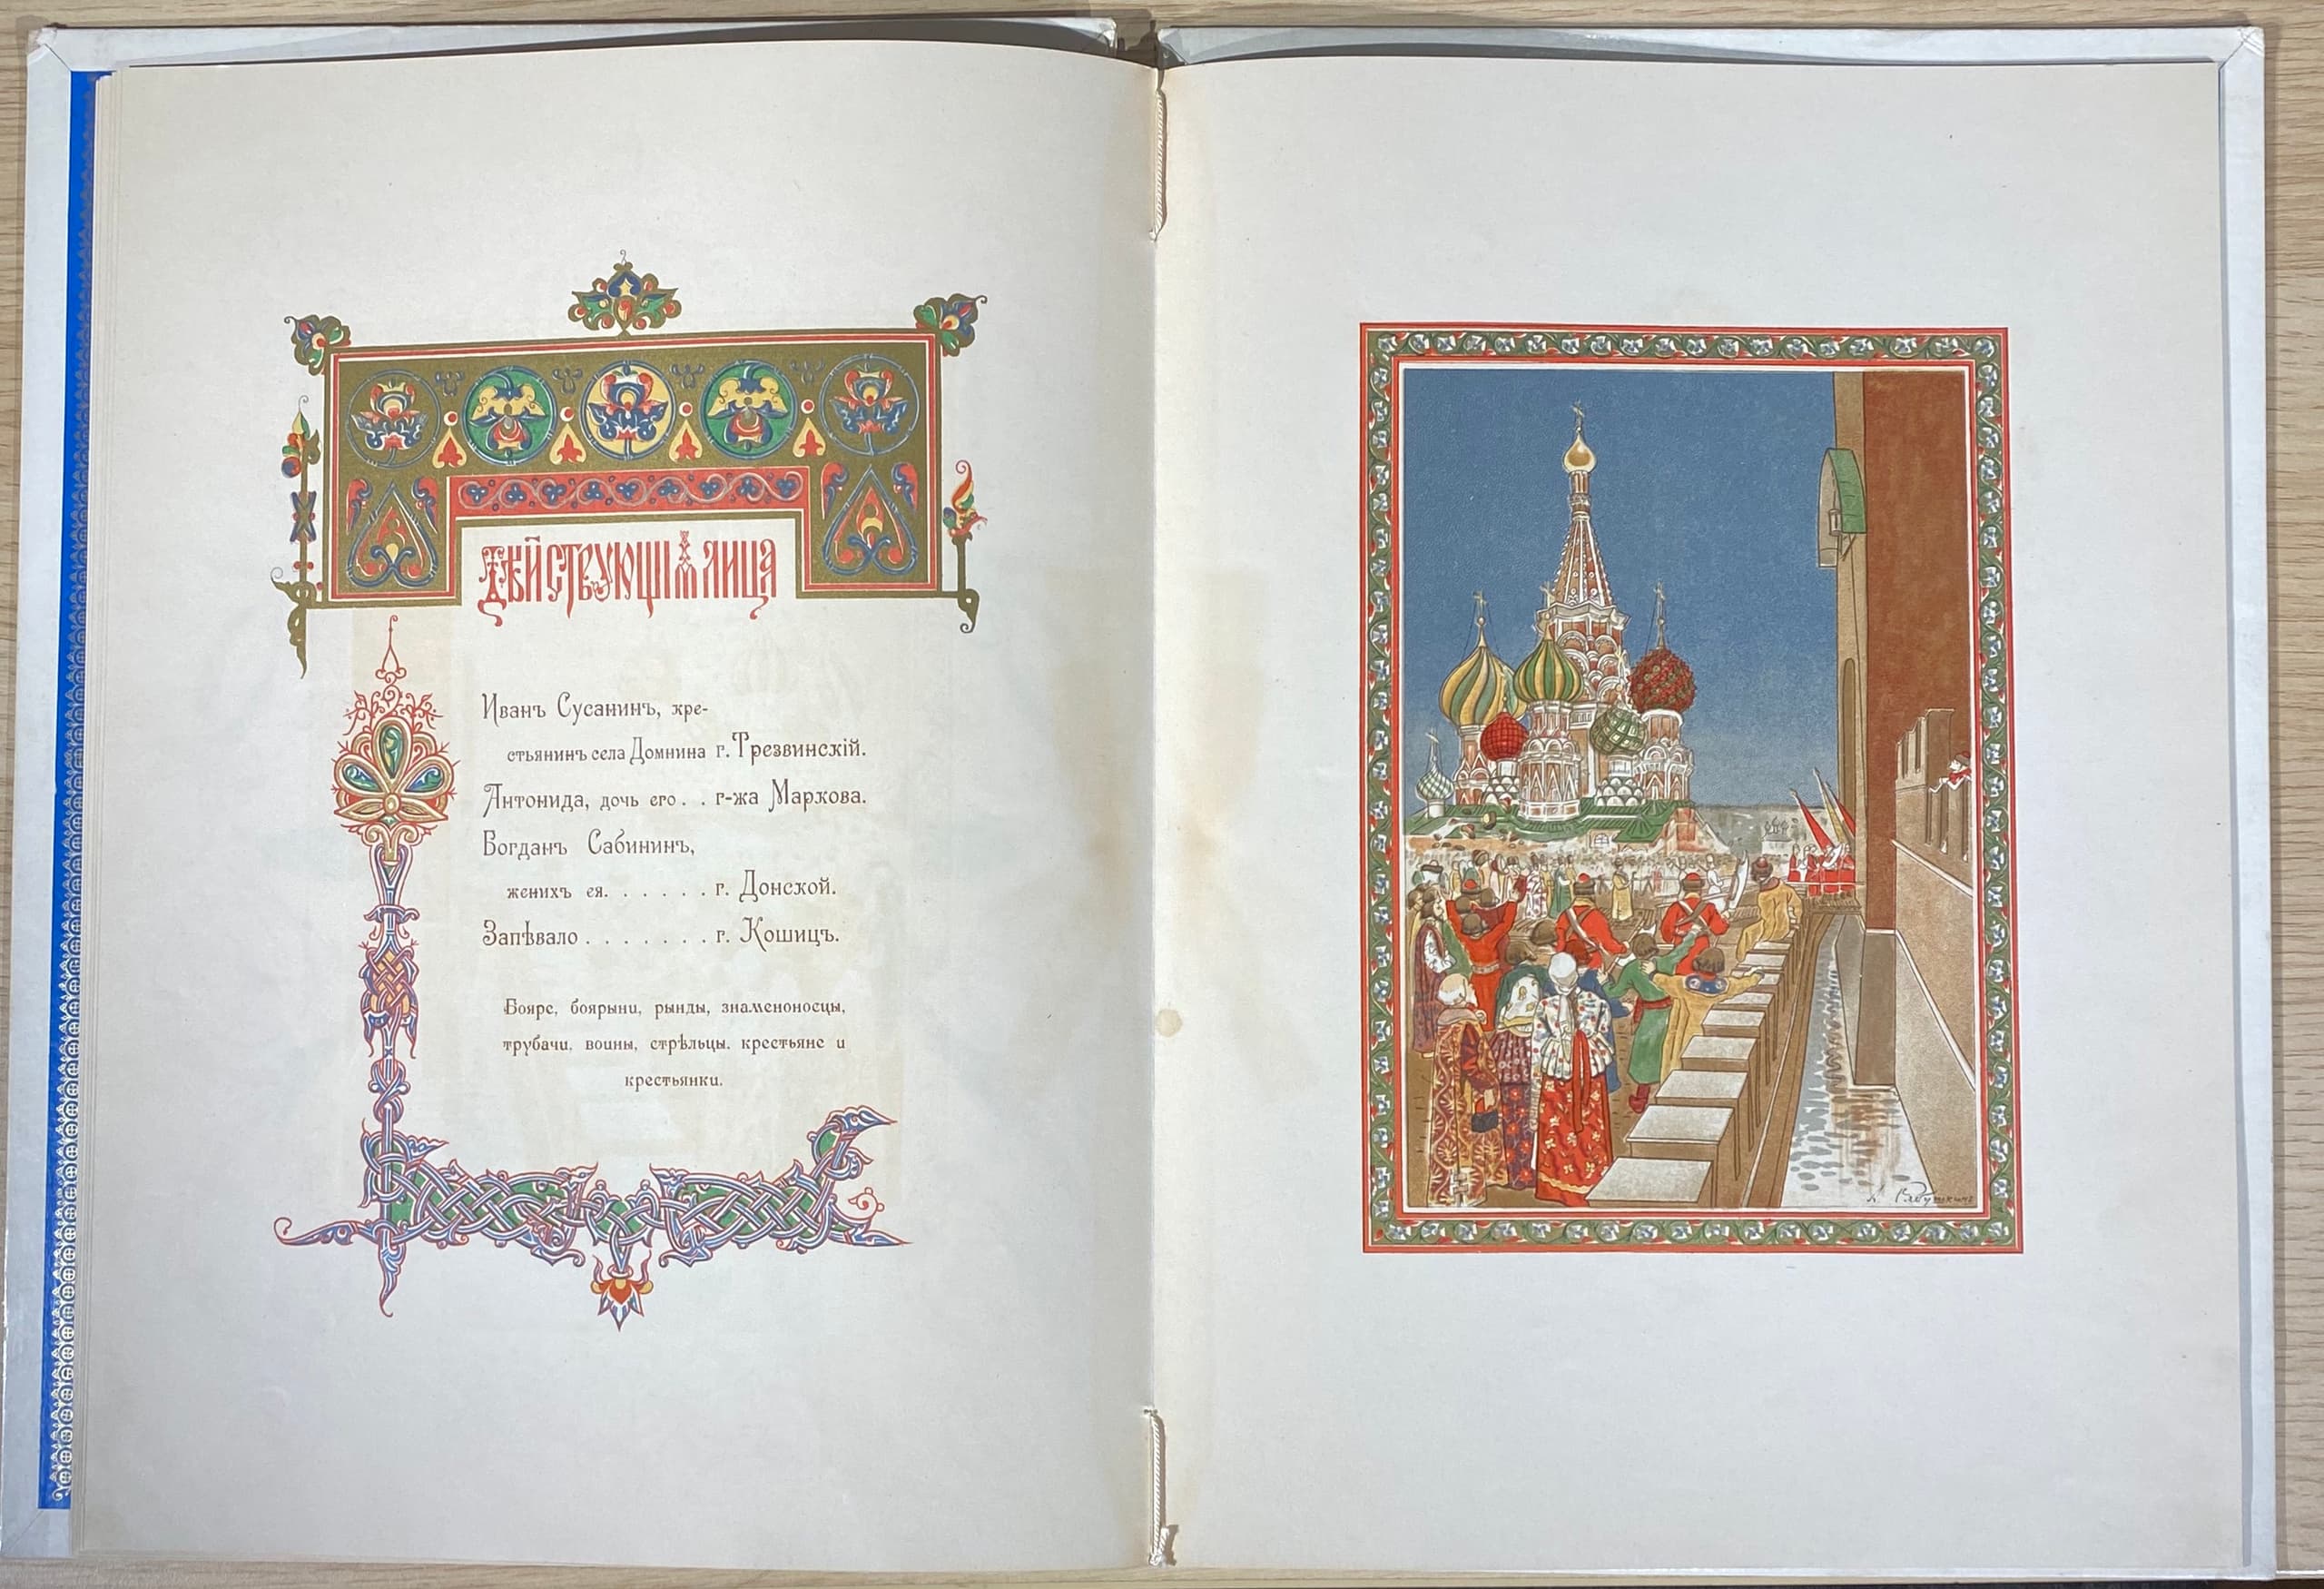 Дѣйствующія лица
Иванъ Сусанинъ, кре-
стьянинъ села Домнина г. Трезвинскій.
Антонида, дочь его . . г-жа Маркова.
Богданъ Сабининъ,
женихъ ея. . . . . . г. Донской.
Запѣвало . . . . . . . г. Кошицъ.
Бояре, боярыни, рынды, знаменоносцы,
трубачи, воины, стрѣльцы, крестьяне и
крестьянки.
Рябушкинъ